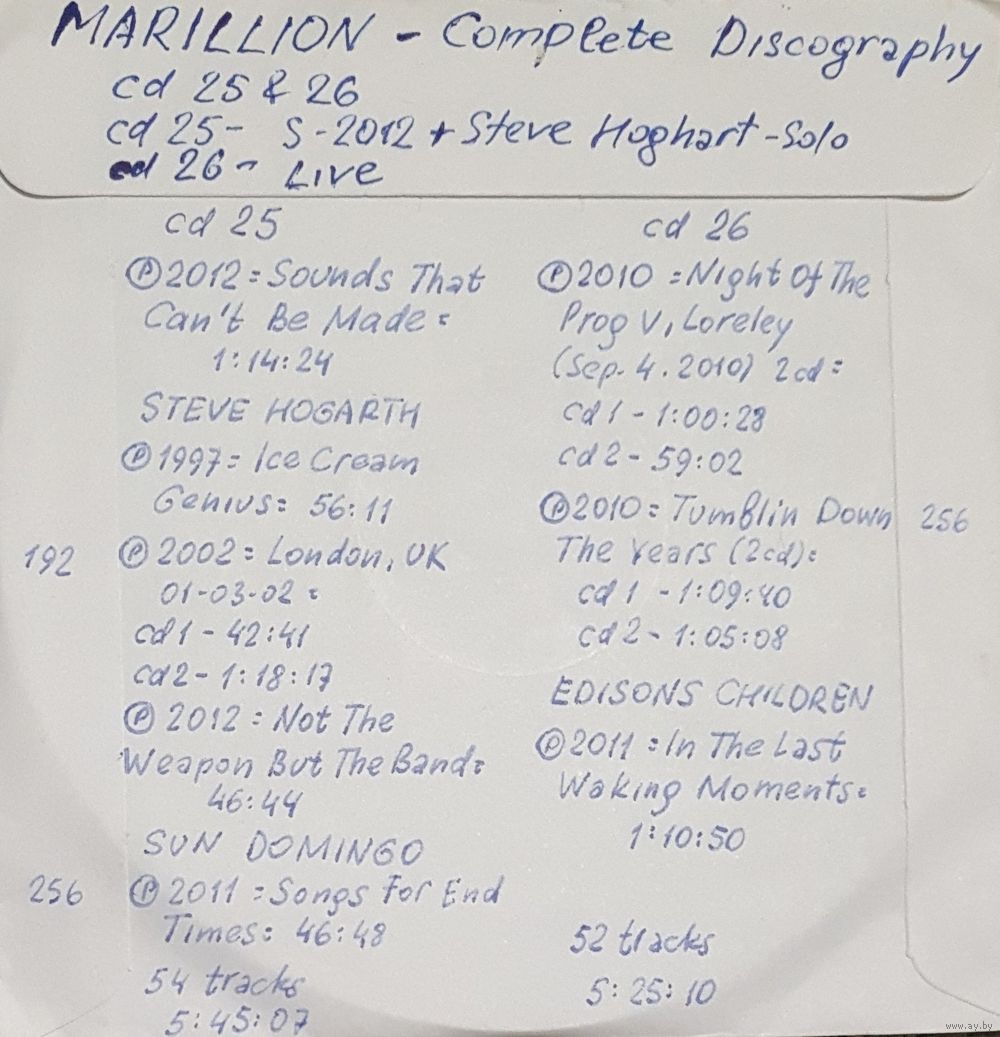 MARILLION - Complete Discography
cd 25 & 26
cd 25- S-2012 + Steve Hoghart-Solo
cd 26- Live
cd 25
Ⓟ2012 = Sounds That
Can't Be Made =
1:14:24
STEVE HOGARTH
Ⓟ1997 = Ice Cream
Genius = 56:11
192 Ⓟ 2002 = London, UK
01-03-02 =
cd1 - 42:41
cd2 - 1:18:17
Ⓟ 2012 = Not The
Weapon But The Band =
46:44
SUN DOMINGO
256 Ⓟ 2011 = Songs For End
Times = 46:48
54 tracks
5:45:07
cd 26
Ⓟ2010 = Night Of The
Prog V, Loreley
(Sep. 4. 2010) 2cd =
cd1 - 1:00:28
cd2 - 59:02
Ⓟ2010 = Tumblin Down 256
The Years (2cd) =
cd1 - 1:09:40
cd2 - 1:05:08
EDISONS CHILDREN
Ⓟ2011 = In The Last
Waking Moments =
1:10:50
52 tracks
5:25:10
www.ay.by